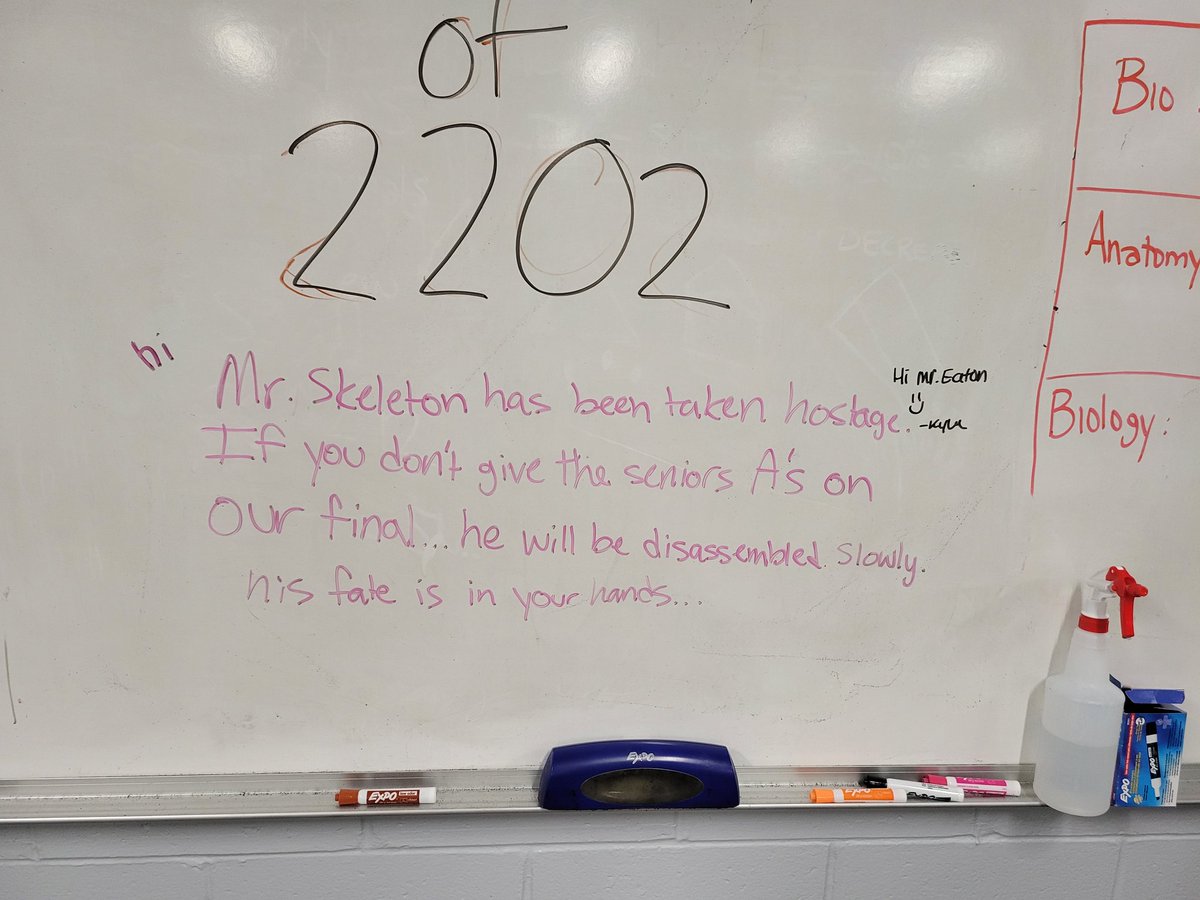 of
2202
hi
Mr. Skeleton has been taken hostage.
If you don't give the seniors A's on
our final... he will be disassembled. Slowly.
his fate is in your hands...
Hi Mr. Eaton
-Kyra
Bio
Anatomy
Biology:
EXPO
EXPO
EXPO
EXPO
EXPO
EXPO